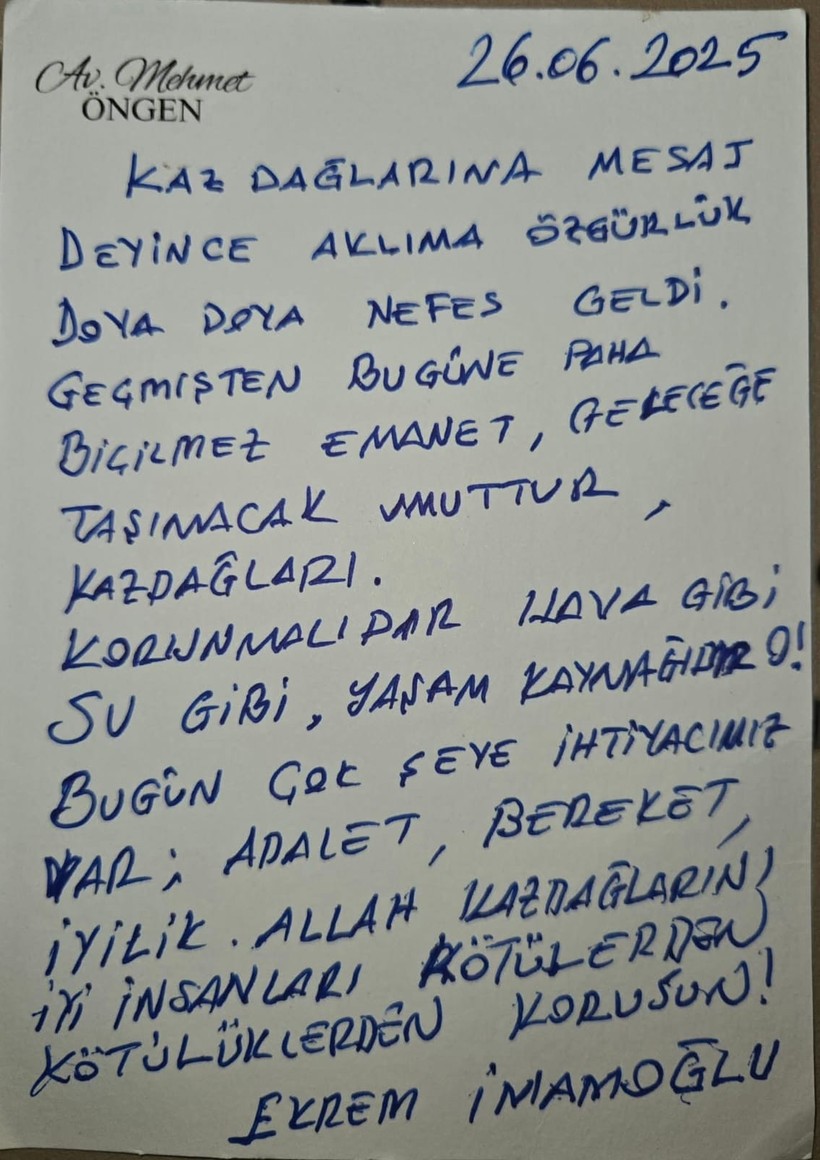 Av. Mehmet
ÖNGEN
26.06.2025
KAZ DAĞLARINA MESAJ
DEYİNCE AKLIMA ÖZGÜRLÜK
DOYA DOYA NEFES GELDİ.
GEÇMİŞTEN BUGÜNE PAHA
BİÇİLMEZ EMANET, GELECEĞE
TAŞINACAK UMUTTUR,
KAZDAĞLARI.
KORUNMALIDIR HAVA GİBİ
SU GİBİ, YAŞAM KAYNAĞIDIR O!
BUGÜN ÇOK ŞEYE İHTİYACIMIZ
VAR; ADALET, BEREKET,
İYİLİK. ALLAH KAZDAĞLARINI
İYİ İNSANLARI KÖTÜLERDEN
KÖTÜLÜKLERDEN KORUSUN!
EKREM İMAMOĞLU